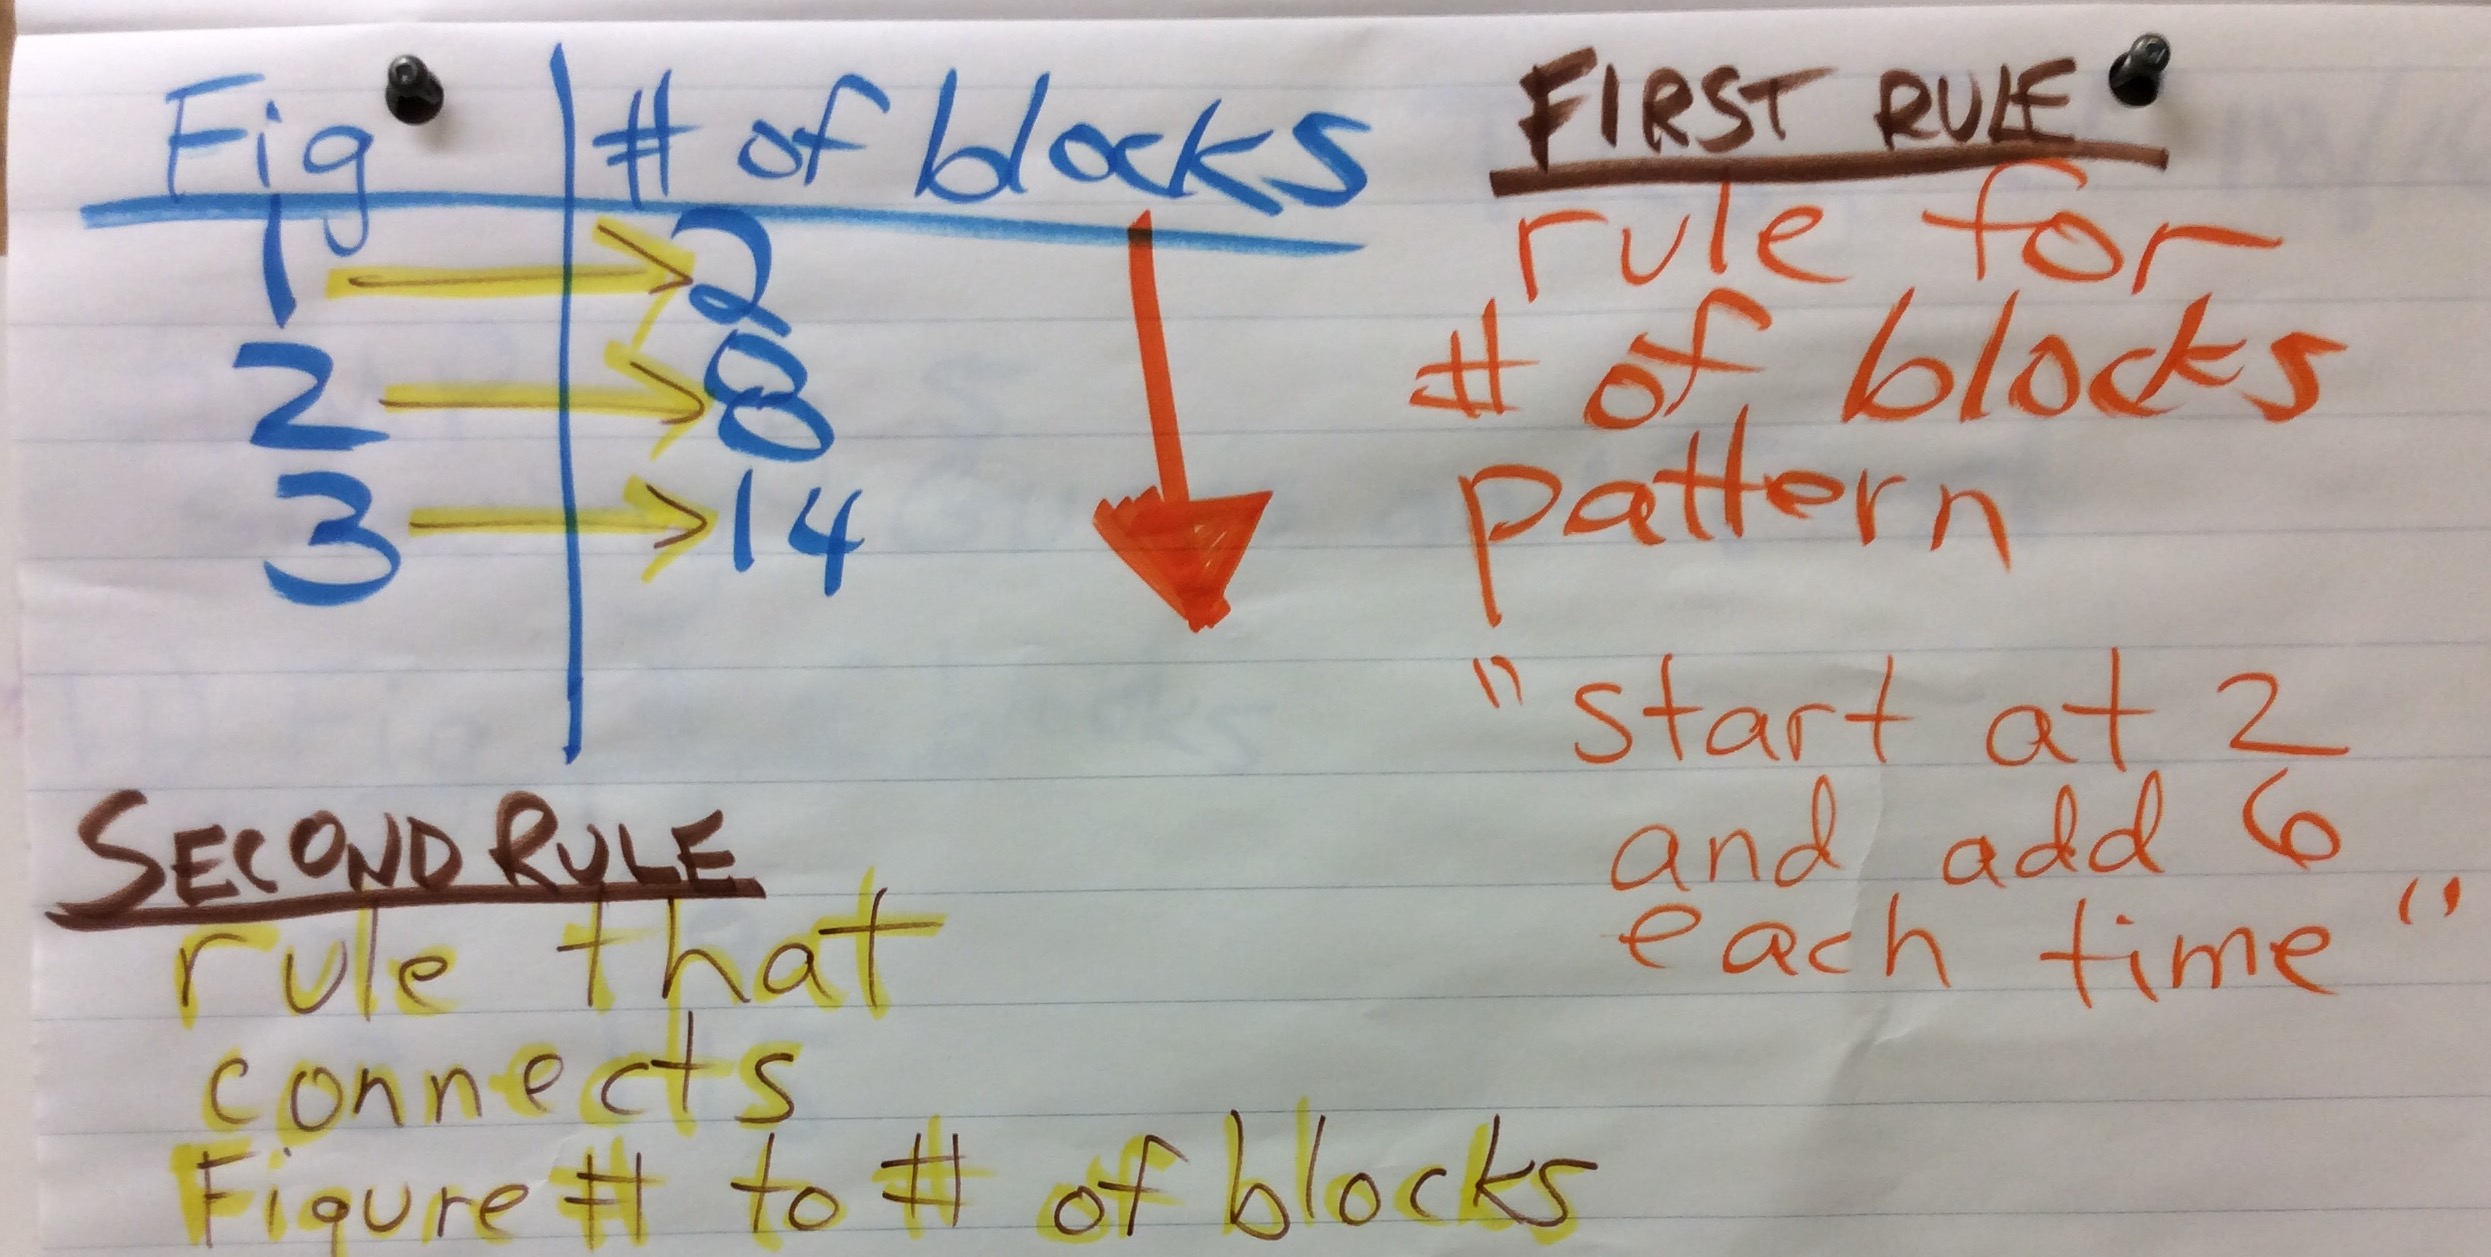 Fig # of blocks
1 → 2
2 → 8
3 → 14
FIRST RULE
rule for
# of blocks
pattern
"start at 2
and add 6
each time"
SECOND RULE
rule that
connects
Figure # to # of blocks